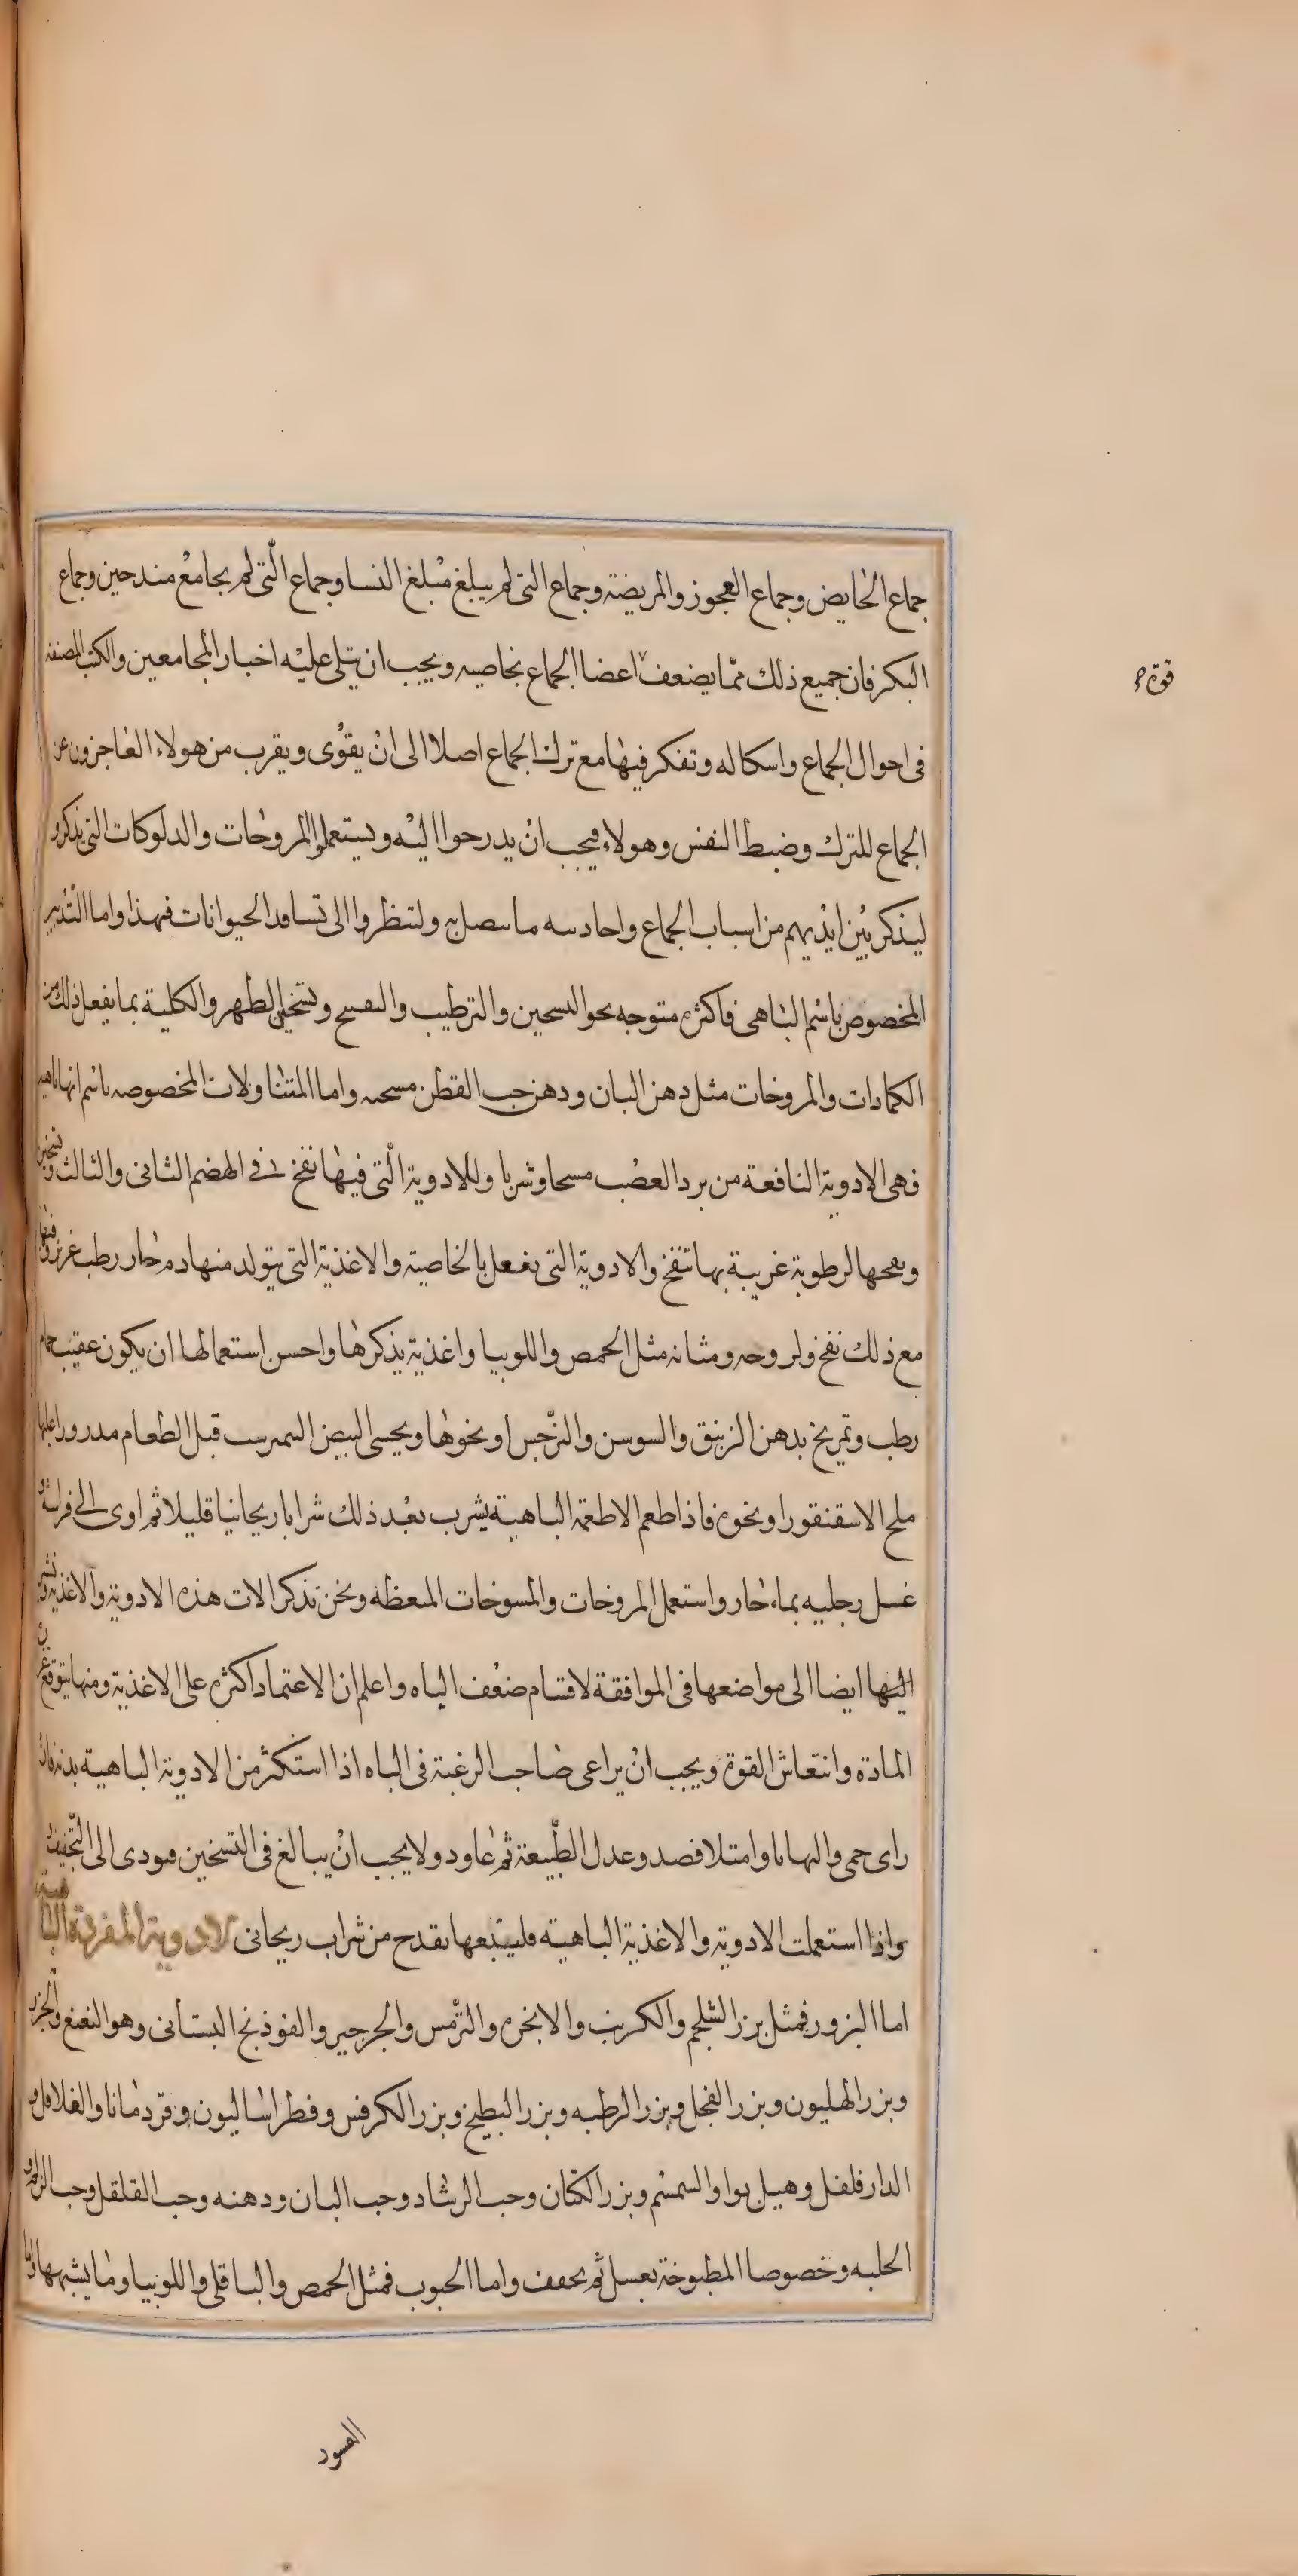 جماع الحايض وجماع العجوز والمريضة وجماع التى لم يبلغ مبلغ النسا وجماع الّتى لم يجامع منذ حين وجماع
البكر فان جميع ذلك ممّا يضعف اعضا الجماع بخاصيه ويجب ان يتلى عليه اخبار المجامعين والكتب المصنفه
قوة صح
فى احوال الجماع واسكاله وتفكر فيها مع ترك الجماع اصلا الى ان يقوى ويقرب من هولاء العاجزون عن
الجماع للترك وضبط النفس وهولاء فيجب ان يدرحوا اليه ويستعملوا المروخات والدلوكات التى يذكر و
ليذكر بين ايديهم من اسباب الجماع واحادسه ما سصل به ولننظروا الى تسافد الحيوانات فهذا واما التدبير
المخصوص باسم الباهى فاكثره متوجه نحو السحين والترطيب والنفيح وتسخين الظهر والكلية بما يفعل ذلك من
الكمادات والمروخات مثل دهن البان ودهن حب القطن مسحه واما المتناولات المخصوصه باسم انها باهيه
فهى الادوية النافعة من برد العصب مسحا وشربا وللادوية الّتى فيها نفخ فى الهضم الثانى والثالث وتسخين
وبعحها لرطوبة غريبة بها تنفخ والادوية التى يفعل بالخاصية والاغذية التى يتولد منها دم حار رطب غزير وفيها
مع ذلك نفخ ولزوجه ومثانه مثل الحمص واللوبيا واغذية يذكرها واحسن استعمالها ان يكون عقيب حمام
رطب وتمريخ بدهن الزنبق والسوسن والنرجس او نحوها ويحسى البيض السمرست قبل الطعام مدرورا عليها
ملح الاسقنقور او نحوه فاذا طعم الاطعمة الباهية يشرب بعد ذلك شرابا ريحانيا قليلا ثم اوى الى فراشه و
غسل رجليه بماء حار واستعمل المروخات والمسوخات المنعظه ونحن نذكر الات هذه الادوية والاغذية ونشير
اليها ايضا الى مواضعها فى الموافقة لاقسام ضعف الباه واعلم ان الاعتماد اكثره على الاغذية ومنها يتوقع غزر
المادة وانتعاش القوة ويجب ان يراعى صاحب الرغبة فى الباه اذا استكثر من الادوية الباهية بدنه فان
راى حمى والهابا وامتلا فصد وعدل الطبيعة ثم عاود ولا يجب ان يبالغ فى التسخين فيودى الى التجفيف
واذا استعملت الادوية والاغذية الباهية فليتبعها بقدح من شراب ريحانى الادوية المفردة الباهية
اما البزور فمثل بزر الشلجم والكرنب والانجره والترمس والجرجير والفوذنج البستانى وهو النعنع والجزر
وبزر الهليون وبزر الفجل وبزر الرطبه وبزر البطيخ وبزر الكرفس وفطراساليون وقردمانا والفلافل و
الدارفلفل وهيل بوا والسمسم وبزر الكتان وحب الرشاد وحب البان ودهنه وحب القلقل وحب الزلم و
الحلبه وخصوصا المطبوخة بعسل ثم يجفف واما الحبوب فمثل الحمص والباقلى واللوبيا وما يشبهها واما